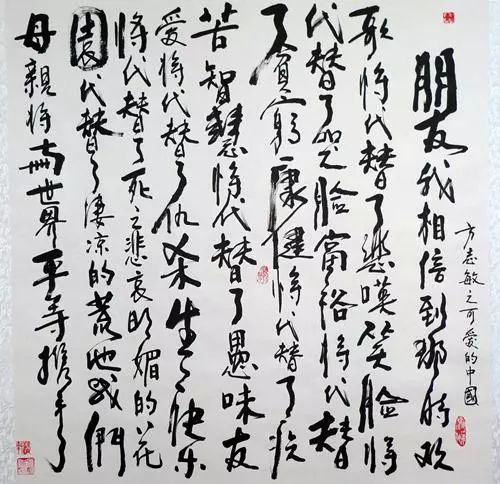 方志敏之可愛的中國
朋友我相信到那時欢
歌将代替了悲嘆笑脸将
代替了哭脸富裕将代替
了貧窮康健将代替了疾
苦智慧将代替了愚味友
愛将代替了仇杀生之快乐
将代替了死之悲哀明媚的花
園代替了凄凉的荒地我們
母親将与世界平等携手了